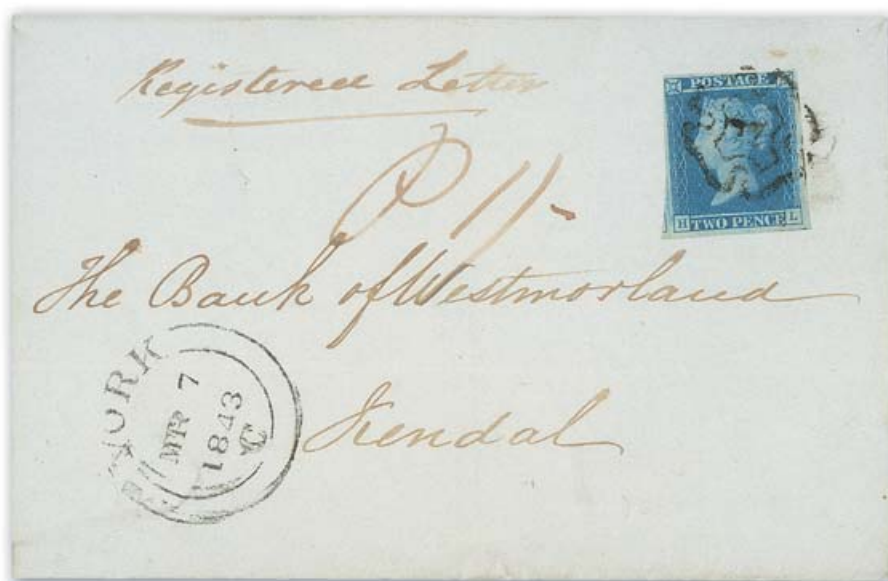 Registered Letter
POSTAGE
H TWO PENCE L
P 1/-
The Bank of Westmorland
Kendal
YORK
MR 7
1843
C